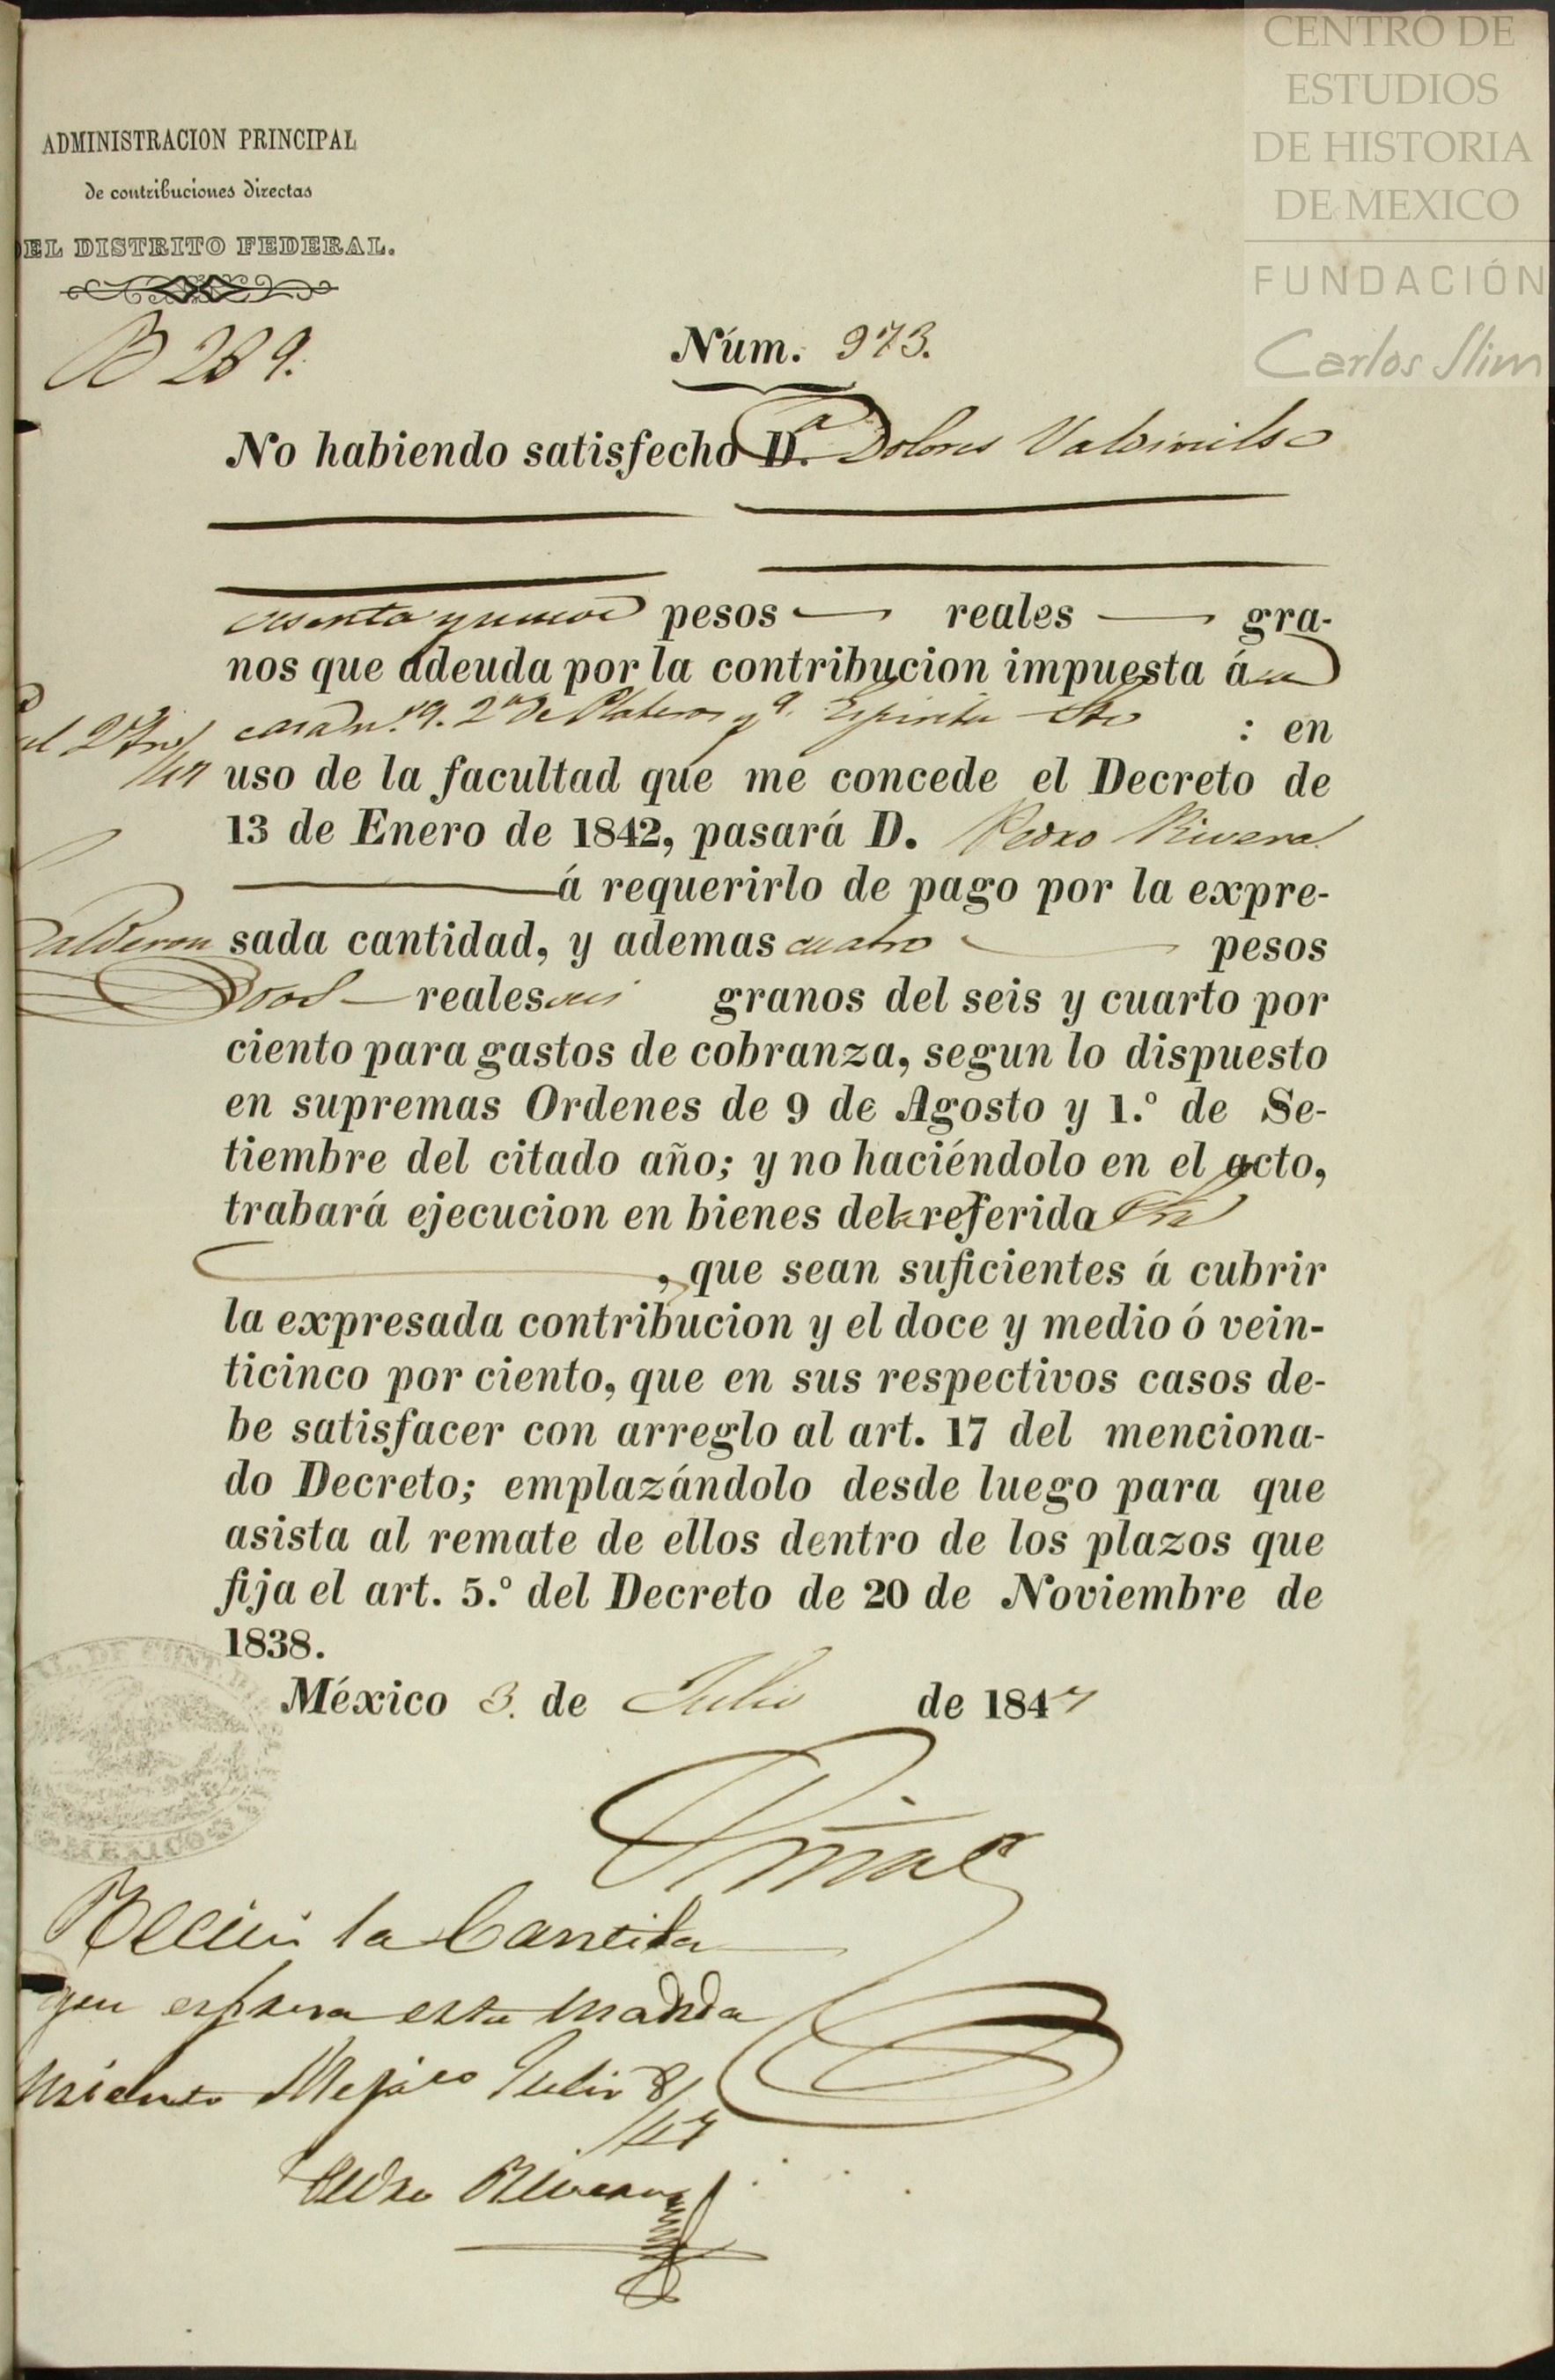 CENTRO DE
ESTUDIOS
DE HISTORIA
DE MEXICO
FUNDACIÓN
Carlos Slim
ADMINISTRACION PRINCIPAL
de contribuciones directas
DEL DISTRITO FEDERAL.
B 289.
Núm. 973.
No habiendo satisfecho D.ª Dolores
pesos reales gra-
nos que adeuda por la contribucion impuesta á su
casa n.º 9. 2ª de Plateros y Espiritu Sto : en
uso de la facultad que me concede el Decreto de
13 de Enero de 1842, pasará D. Pedro Rivera
á requerirlo de pago por la expre-
Calderon sada cantidad, y ademas cuatro pesos
dos reales seis granos del seis y cuarto por
ciento para gastos de cobranza, segun lo dispuesto
en supremas Ordenes de 9 de Agosto y 1.º de Se-
tiembre del citado año; y no haciéndolo en el acto,
trabará ejecucion en bienes de la referida Sra
, que sean suficientes á cubrir
la expresada contribucion y el doce y medio ó vein-
ticinco por ciento, que en sus respectivos casos de-
be satisfacer con arreglo al art. 17 del menciona-
do Decreto; emplazándolo desde luego para que
asista al remate de ellos dentro de los plazos que
fija el art. 5.º del Decreto de 20 de Noviembre de
1838.
México 3. de Julio de 1847
MEXICO
Recivi la Cantida
que espresa este manda
miento Mejico Julio 8/47
Pedro Rivera